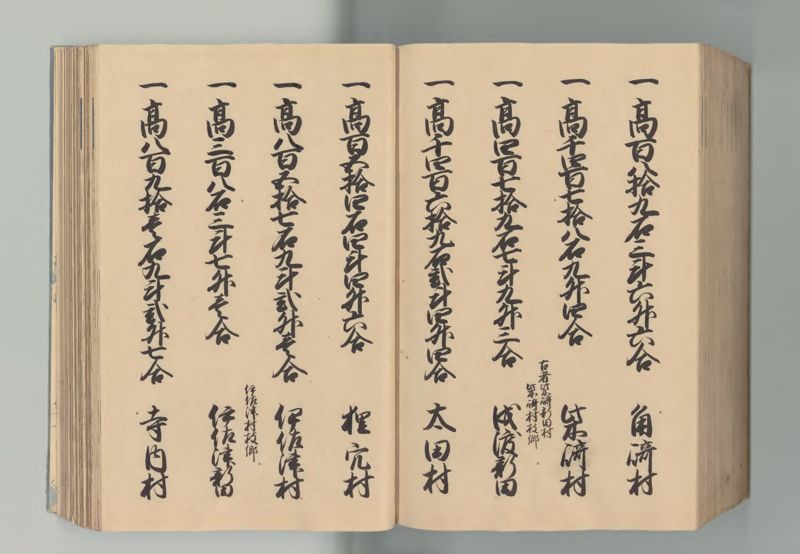 一 高百八拾九石三斗六升六合 角崎村
一 高千四百七拾八石九升四合 柴崎村
古者柴崎新田村
柴崎村枝郷
一 高四百七拾九石七斗九升二合 成渡新田
一 高千四百六拾九石弐斗四升四合 太田村
一 高百五拾四石四斗四升六合 狸穴村
一 高八百五拾七石九斗弐升壱合 伊佐津村
伊佐津村枝郷
一 高三百八石三斗七升壱合 伊佐津新田
一 高八百九拾壱石九斗弐升七合 寺内村